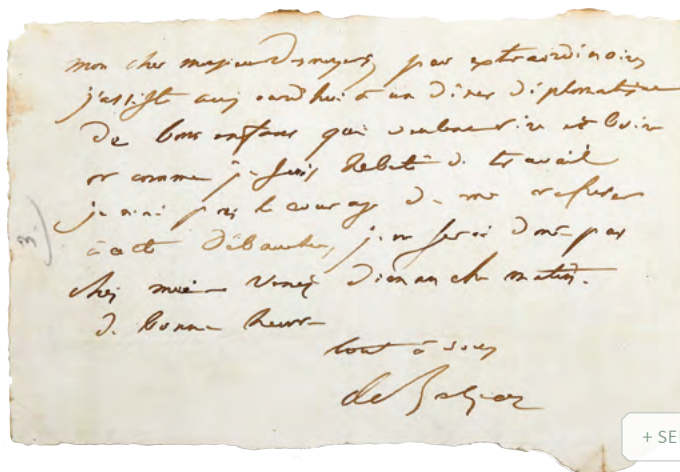 mon cher monsieur Desnoyers, par extraordinaire
j'assiste aujourd'hui à un diner diplomatique
de bons enfans qui veulent rire et boire
or comme je suis hebété de travail
je n'ai pas le courage de me refuser
à cette débauche, je ne serai donc pas
chez moi - venez dimanche matin.
de bonne heure
tout à vous
de Balzac
3.)
+ SE